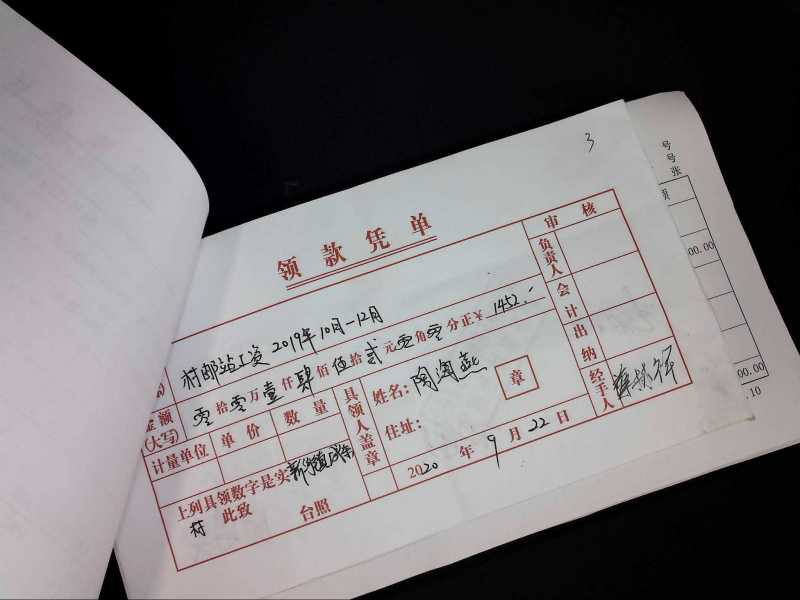 3
领款凭单
村邮站工资 2019年10月-12月
金额(大写) 零拾零万壹仟肆佰伍拾贰元零角零分正¥1452.-
计量单位 单价 数量
具领人盖章
姓名: 陶海燕 章
住址:
2020年9月22日
上列具领数字是实
村 此致 台照
审核
负责人
会计
出纳
经手人
号
号
张
00.00
00.00
.10